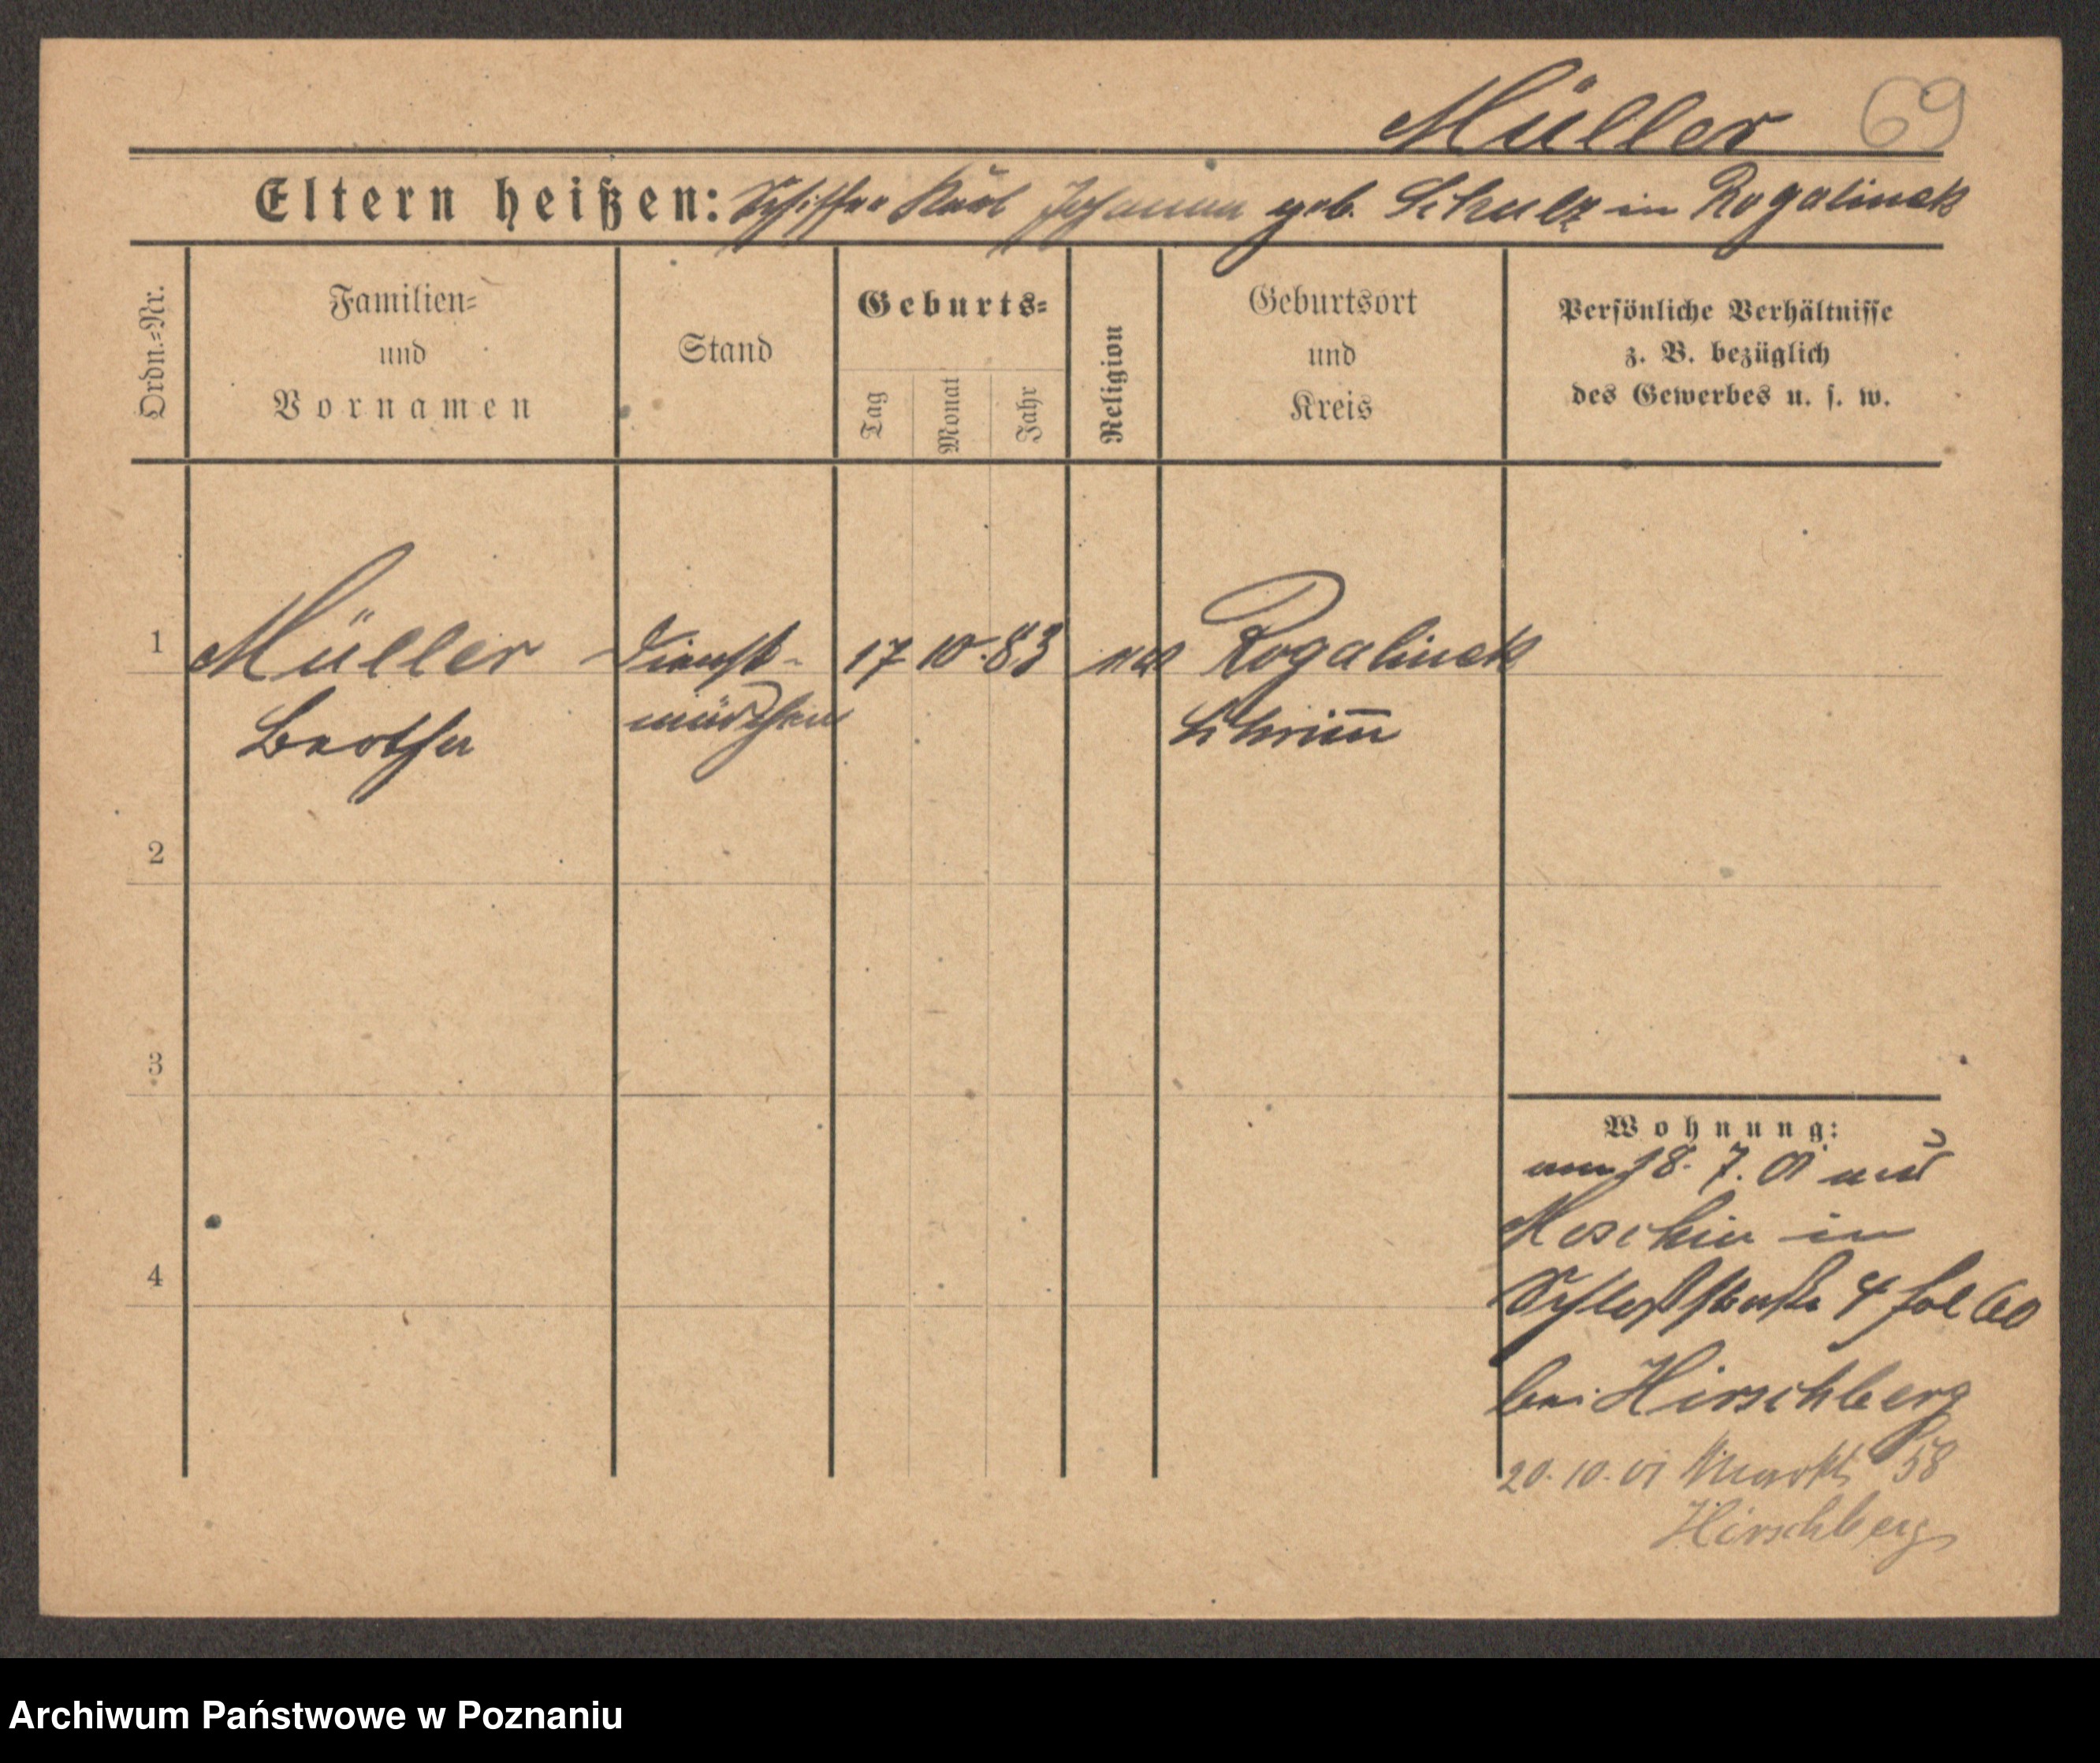 Müller 69
Eltern heißen: Schiffer Karl Johanna geb. Schulz in Rogalinek
Ordn.=Nr.
Familien=
und
Vornamen
Stand
Geburts=
Tag
Monat
Jahr
Religion
Geburtsort
und
Kreis
Persönliche Verhältnisse
z. B. bezüglich
des Gewerbes u. s. w.
1 Müller Dienst- 17 10. 83 Rogalinek
Bertha mädchen Schrim̅
2
3
4
Wohnung:
am 18. 7. 01 aus
Moschin in
Schloßstraße 4 fol 60
bei Hirschberg
20. 10. 01 Markt 58
Hirschberg
Archiwum Państwowe w Poznaniu